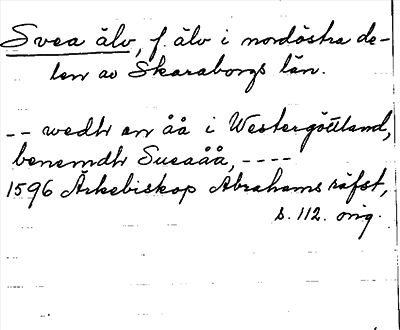 Svea älv, f. älv i nordöstra de-
len av Skaraborgs län.
-- wedh en åå i Westergöttland,
benemdh Sueaåå, ----
1596 Ärkebiskop Abrahams räfst,
s. 112. orig.